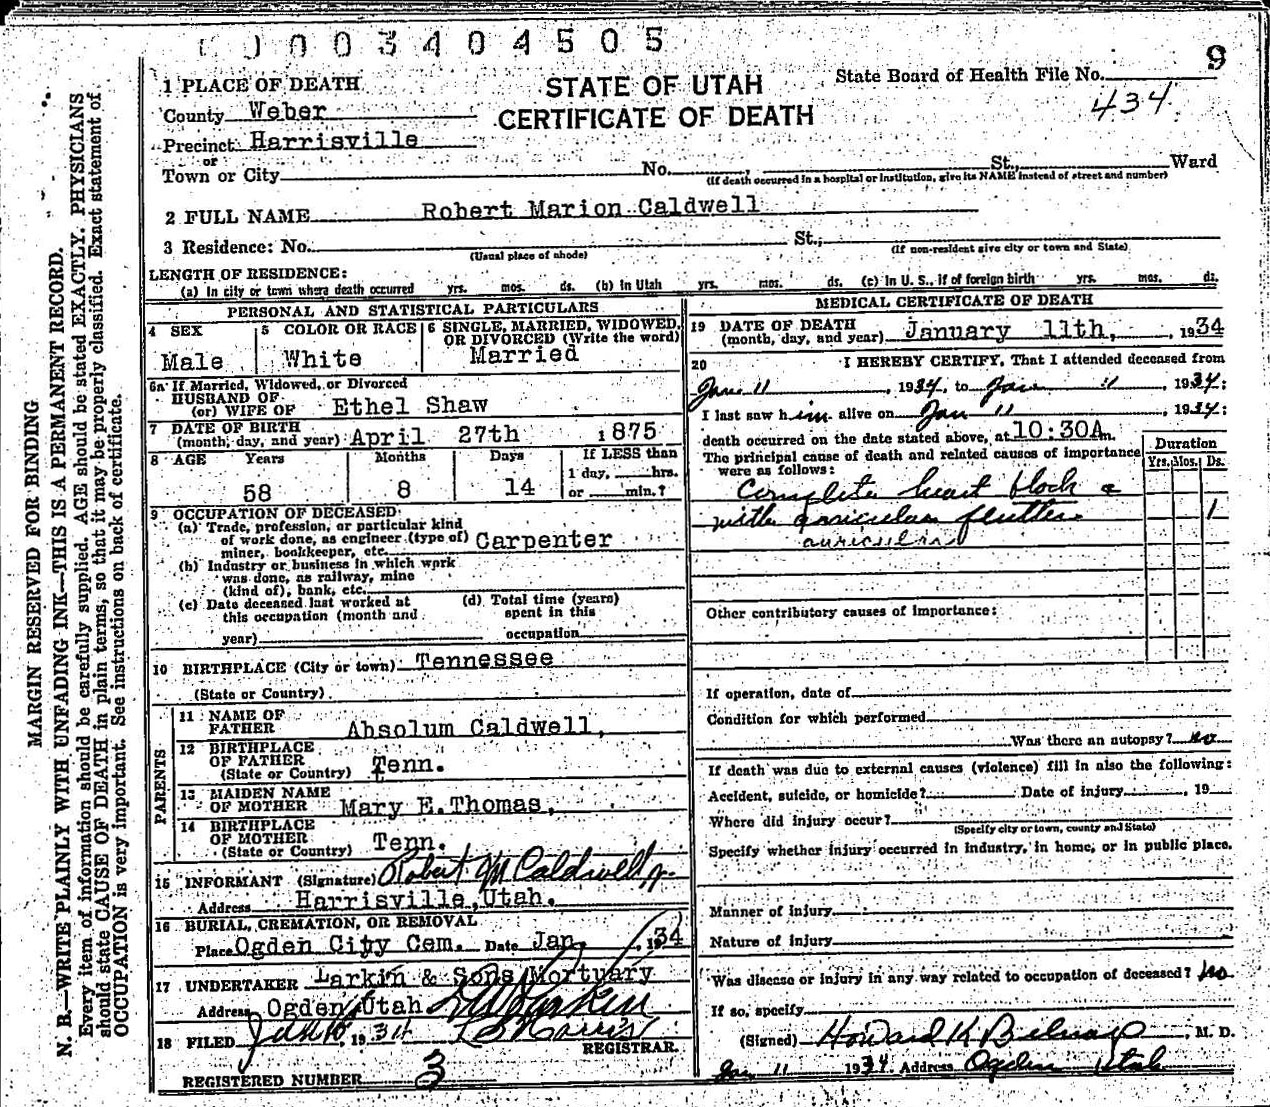 0003404505
9
1 PLACE OF DEATH
STATE OF UTAH
State Board of Health File No.
County Weber
CERTIFICATE OF DEATH
434
Precinct Harrisville
or
Town or City No. St., Ward
(If death occurred in a hospital or institution, give its NAME instead of street and number)
2 FULL NAME Robert Marion Caldwell
3 Residence: No. St.,
(Usual place of abode) (If non-resident give city or town and State)
LENGTH OF RESIDENCE:
(a) In city or town where death occurred yrs. mos. ds. (b) In Utah yrs. mos. ds. (c) In U. S., if of foreign birth yrs. mos. ds.
PERSONAL AND STATISTICAL PARTICULARS
4 SEX
Male
5 COLOR OR RACE
White
6 SINGLE, MARRIED, WIDOWED,
OR DIVORCED (Write the word)
Married
6a If Married, Widowed, or Divorced
HUSBAND OF
(or) WIFE OF Ethel Shaw
7 DATE OF BIRTH
(month, day, and year) April 27th 1875
8 AGE Years Months Days If LESS than
1 day, hrs.
58 8 14 or min.?
9 OCCUPATION OF DECEASED:
(a) Trade, profession, or particular kind
of work done, as engineer (type of)
miner, bookkeeper, etc. Carpenter
(b) Industry or business in which work
was done, as railway, mine
(kind of), bank, etc.
(c) Date deceased last worked at
this occupation (month and
year)
(d) Total time (years)
spent in this
occupation
10 BIRTHPLACE (City or town) Tennessee
(State or Country)
PARENTS
11 NAME OF
FATHER Absolum Caldwell,
12 BIRTHPLACE
OF FATHER
(State or Country) Tenn.
13 MAIDEN NAME
OF MOTHER Mary E. Thomas,
14 BIRTHPLACE
OF MOTHER
(State or Country) Tenn.
15 INFORMANT (Signature) Robert M Caldwell, Jr.
Address Harrisville, Utah.
16 BURIAL, CREMATION, OR REMOVAL
Place Ogden City Cem. Date Jan. 1934
17 UNDERTAKER Larkin & Sons Mortuary
Address Ogden Utah
18 FILED Jan 1934
REGISTRAR.
REGISTERED NUMBER 3
MEDICAL CERTIFICATE OF DEATH
19 DATE OF DEATH
(month, day, and year) January 11th, 1934
20 I HEREBY CERTIFY, That I attended deceased from
Jan 11, 1934, to Jan 11, 1934;
I last saw him alive on Jan 11, 1934;
death occurred on the date stated above, at 10:30A m.
The principal cause of death and related causes of importance
were as follows:
Duration
Yrs. Mos. Ds.
Complete heart block
with auricular flutter 1
auricular
Other contributory causes of importance:
If operation, date of
Condition for which performed
Was there an autopsy? no
If death was due to external causes (violence) fill in also the following:
Accident, suicide, or homicide? Date of injury , 19
Where did injury occur?
(Specify city or town, county and State)
Specify whether injury occurred in industry, in home, or in public place.
Manner of injury
Nature of injury
Was disease or injury in any way related to occupation of deceased? No
If so, specify
(Signed) Howard K Belnap, M. D.
Jan 11 1934 Address Ogden Utah
MARGIN RESERVED FOR BINDING
N. B.—WRITE PLAINLY WITH UNFADING INK—THIS IS A PERMANENT RECORD.
Every item of information should be carefully supplied. AGE should be stated EXACTLY. PHYSICIANS
should state CAUSE OF DEATH in plain terms, so that it may be properly classified. Exact statement of
OCCUPATION is very important. See instructions on back of certificate.